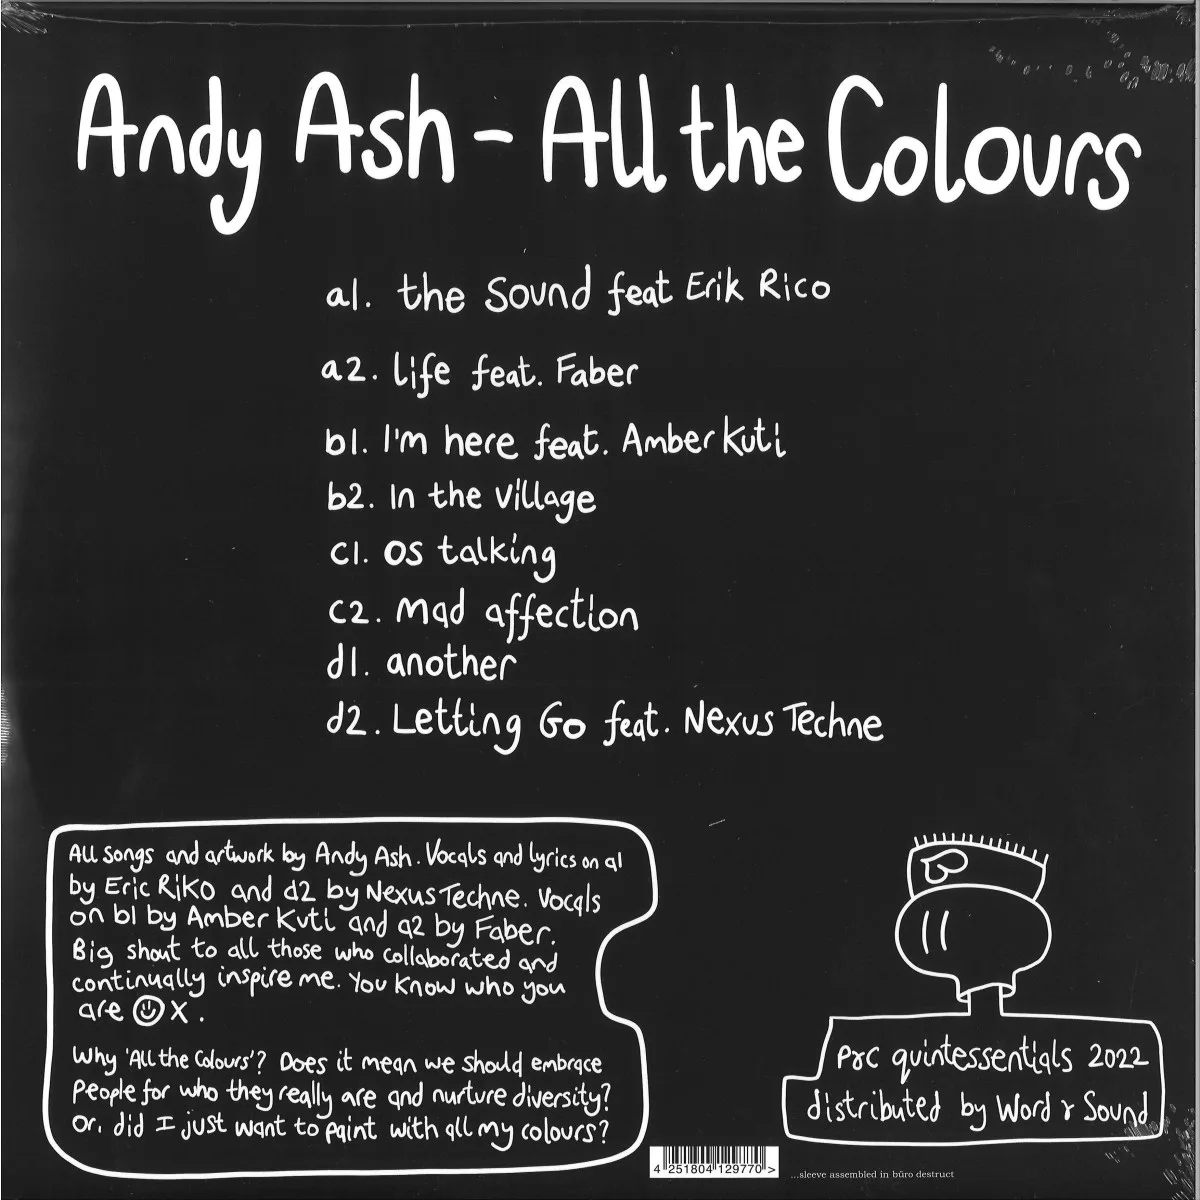 Andy Ash - All the Colours
a1. the Sound feat Erik Rico
a2. life feat. Faber
b1. I'm here feat. Amber Kuti
b2. In the village
c1. os talking
c2. mad affection
d1. another
d2. Letting Go feat. Nexus Techne
All songs and artwork by Andy Ash. Vocals and lyrics on a1
by Eric Riko and d2 by Nexus Techne. Vocals
on b1 by Amber Kuti and a2 by Faber.
Big shout to all those who collaborated and
continually inspire me. You know who you
are ☺ x.
Why 'All the Colours'? Does it mean we should embrace
People for who they really are and nurture diversity?
Or, did I just want to paint with all my colours?
P&C quintessentials 2022
distributed by Word & Sound
4 251804 129770 >
...sleeve assembled in büro destruct